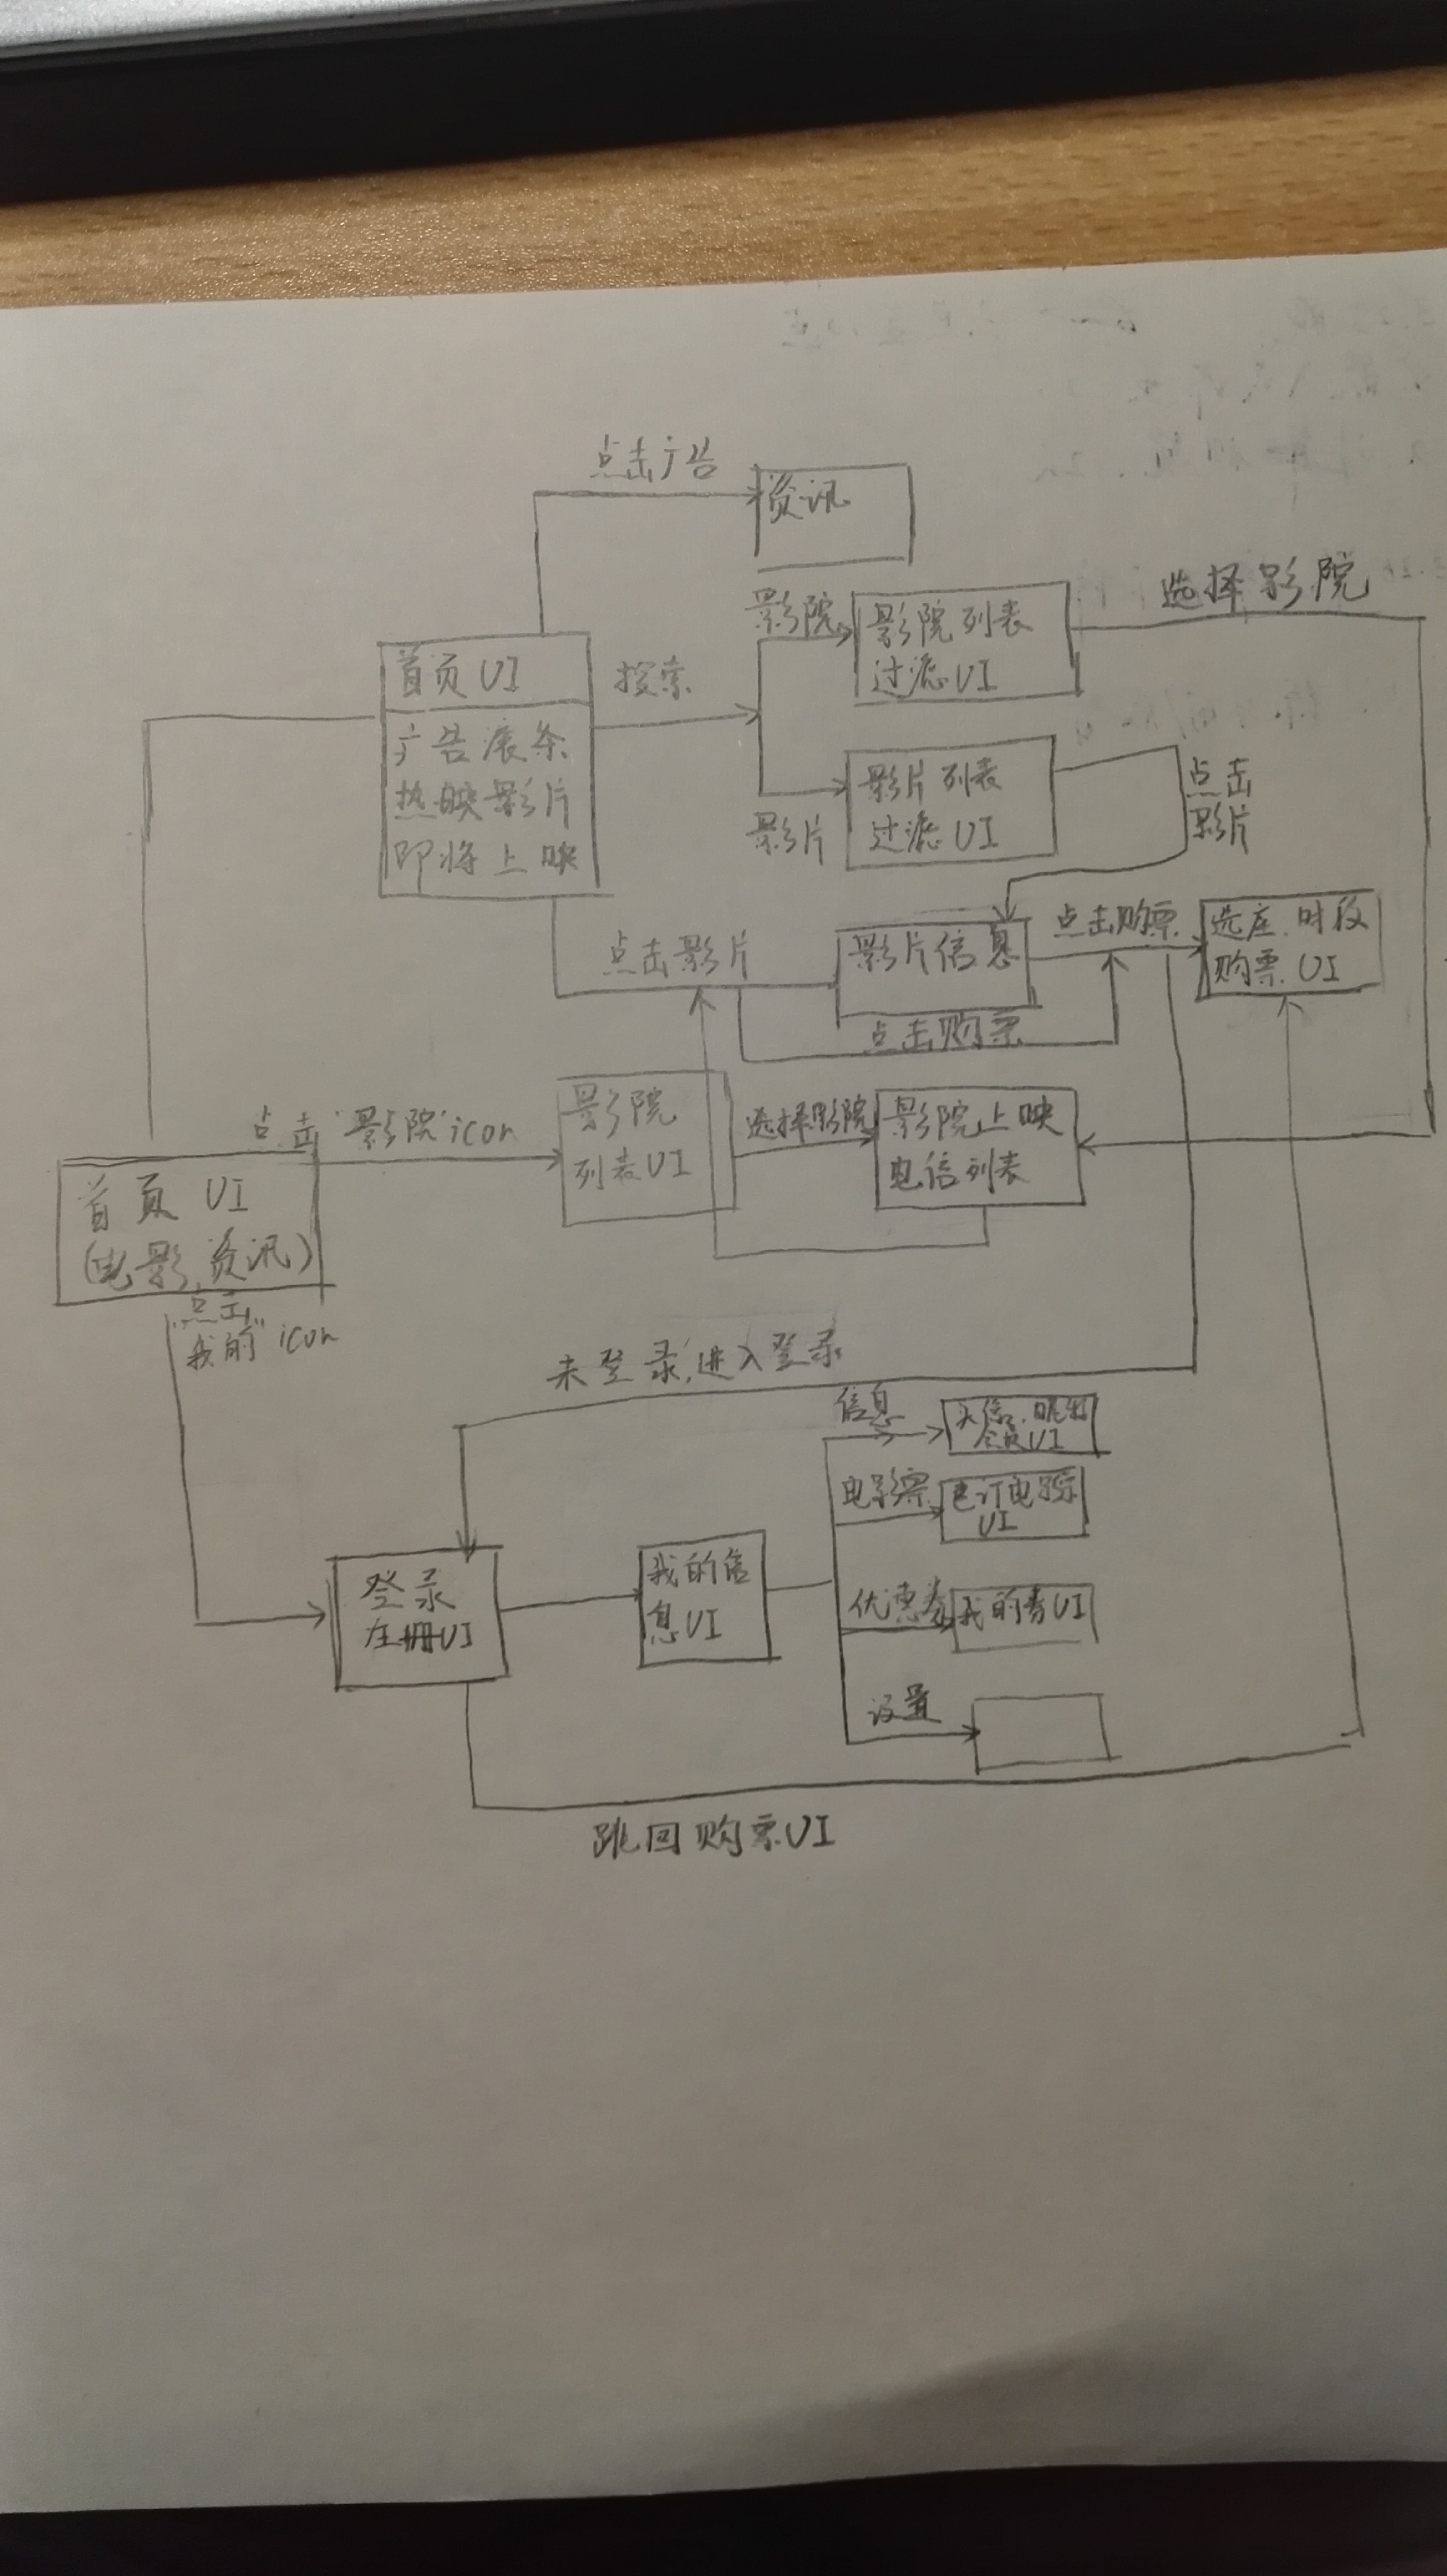 点击广告
资讯
选择影院
影院
影院列表
过滤UI
首页UI
搜索
广告滚条
热映影片
即将上映
影片列表
过滤UI
影片
点击
影片
点击影片
影片信息
点击购票
选座.时段
购票UI
点击购票
点击"影院"icon
影院
列表UI
选择影院
影院上映
电信列表
首页 UI
(电影,资讯)
点击
"我的"icon
未登录,进入登录
信息
UI
电影票
UI
登录
注册UI
我的信
息UI
优惠券
我的青UI
设置
跳回购票UI